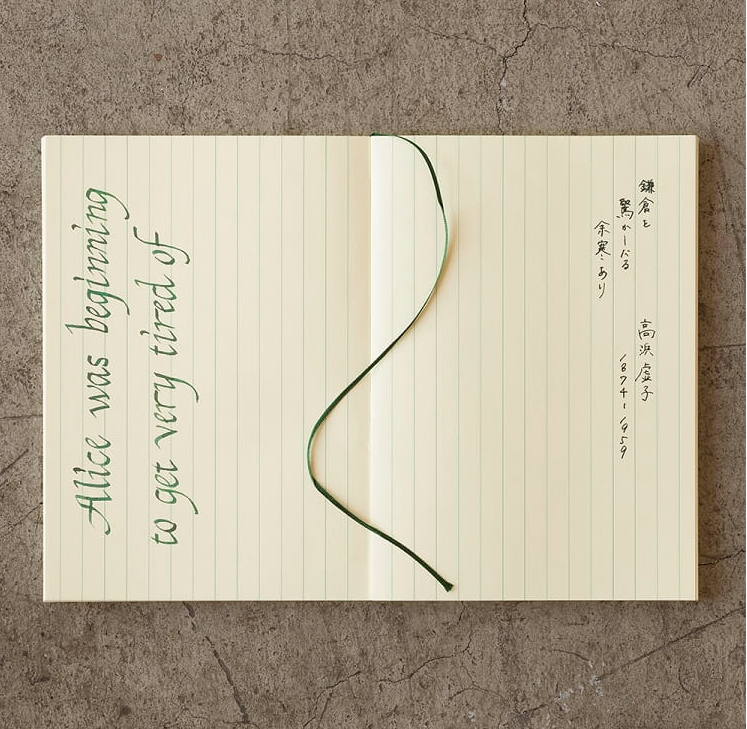 Alice was beginning
to get very tired of
鎌倉を
驚かしたる
余寒あり
高浜虚子
1874-1959